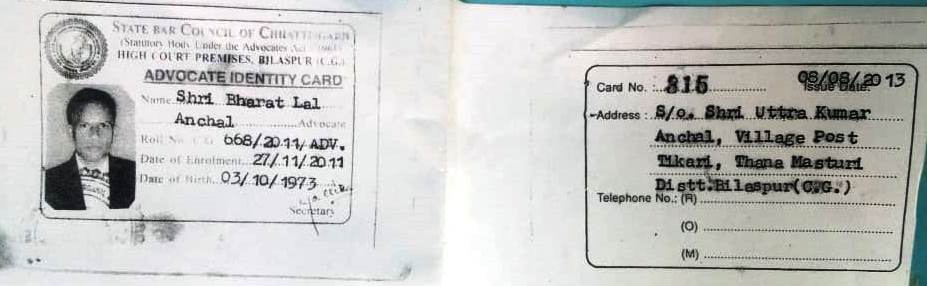 STATE BAR COUNCIL OF CHHATTISGARH
(Statutory Body Under the Advocates Act 1961)
HIGH COURT PREMISES, BILASPUR (C.G.)
ADVOCATE IDENTITY CARD
Name Shri Bharat Lal
Anchal Advocate
Roll No. C.G. 668/2011/ADV.
Date of Enrolment 27/11/2011
Date of Birth 03/10/1973
Secretary
Card No. : 815 08/08/2013
Issue Date:
Address : S/o. Shri Uttra Kumar
Anchal, Village Post
Tikari, Thana Masturi
Distt.Bilaspur(C.G.)
Telephone No.: (R)
(O)
(M)